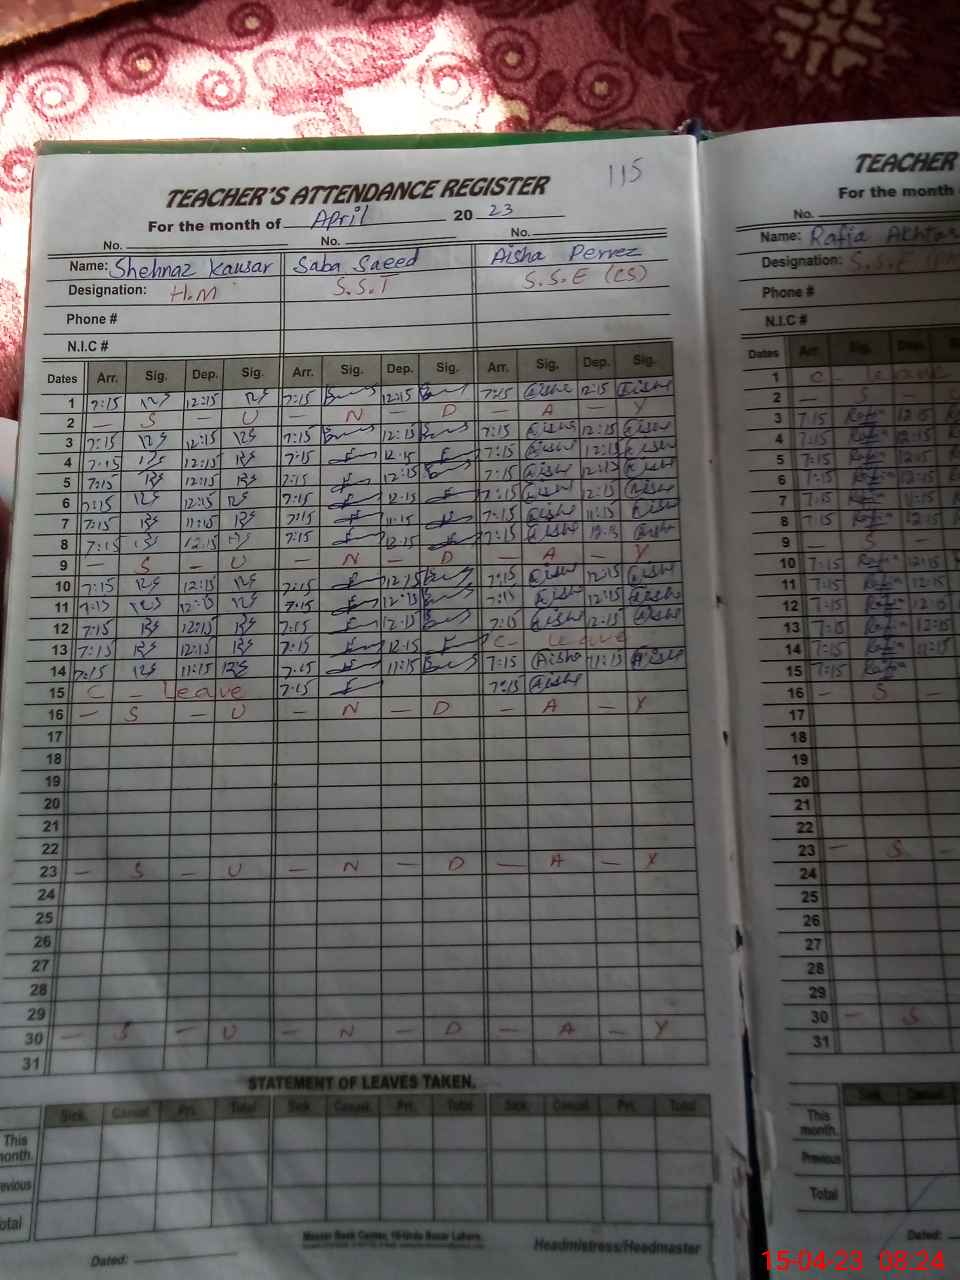 115
TEACHER'S ATTENDANCE REGISTER
For the month of April 20 23
No. No. No.
Name: Shehnaz Kausar Saba Saeed Aisha Pervez
Designation: H.M S.S.T S.S.E (CS)
Phone #
N.I.C #
Dates Arr. Sig. Dep. Sig. Arr. Sig. Dep. Sig. Arr. Sig. Dep. Sig.
1 7:15 12:15 7:15 12:15 7:15 Aisha 12:15 Aisha
2 — S — U — N — D — A — Y
3 7:15 12:15 7:15 12:15 7:15 Aisha 12:15 Aisha
4 7:15 12:15 7:15 12:15 7:15 Aisha 12:15 Aisha
5 7:15 12:15 7:15 12:15 7:15 Aisha 12:15 Aisha
6 7:15 12:15 7:15 12:15 7:15 Aisha 12:15 Aisha
7 7:15 11:15 7:15 11:15 7:15 Aisha 11:15 Aisha
8 7:15 12:15 7:15 12:15 7:15 Aisha Aisha
9 — S — U — N — D — A — Y
10 7:15 12:15 7:15 12:15 7:15 Aisha 12:15 Aisha
11 7:15 12:15 7:15 12:15 7:15 Aisha 12:15 Aisha
12 7:15 12:15 7:15 12:15 7:15 Aisha 12:15 Aisha
13 7:15 12:15 7:15 12:15 C- leave
14 7:15 11:15 7:15 11:15 7:15 Aisha 11:15 Aisha
15 C - Leave 7:15 7:15 Aisha
16 — S — U — N — D — A — Y
17
18
19
20
21
22
23 — S — U — N — D — A — Y
24
25
26
27
28
29
30 — S — U — N — D — A — Y
31
STATEMENT OF LEAVES TAKEN.
Sick. Casual. Pri. Total Sick. Casual. Pri. Total Sick. Casual. Pri. Total
This
month.
Previous
Total
Dated: Headmistress/Headmaster
TEACHER
For the month
No.
Name: Rafia Akhtar
Designation: S.S.E
Phone #
N.I.C #
Dates Arr. Sig. Dep.
1 C - leave
2 — S —
3 7:15 Rafia 12:15
4 7:15 Rafia 12:15
5 7:15 Rafia 12:15
6 7:15 Rafia 12:15
7 7:15 Rafia 11:15
8 7:15 Rafia 12:15
9 — S —
10 7:15 Rafia 12:15
11 7:15 Rafia 12:15
12 7:15 Rafia 12:15
13 7:15 Rafia 12:15
14 7:15 Rafia 11:15
15 7:15 Rafia
16 — S —
17
18
19
20
21
22
23 — S —
24
25
26
27
28
29
30 — S
31
Sick. Casual.
This
month.
Previous
Total
Dated:
15-04-23 08:24